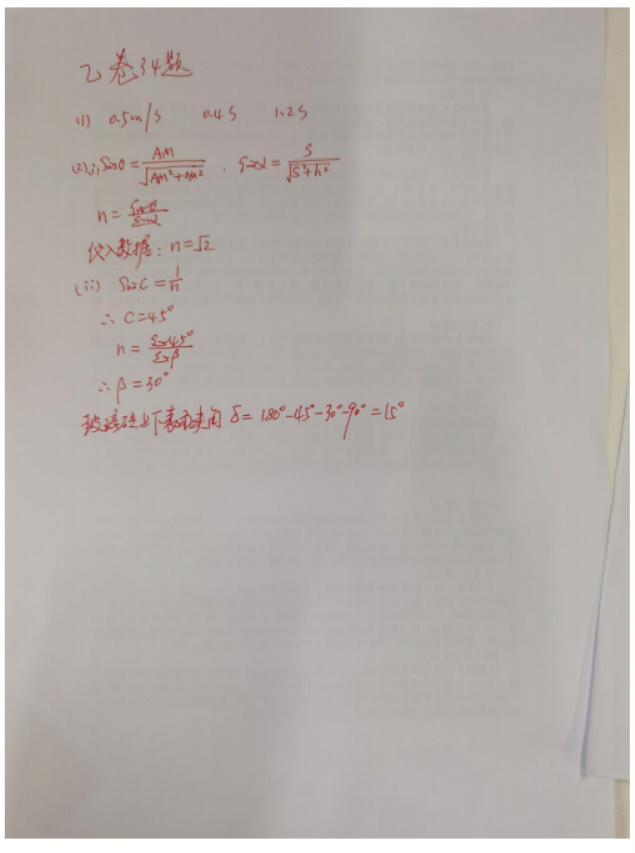 乙卷34题
(1) 0.5m/s 0.4s 1.2s
(2)(i) sinθ = AM/√(AM²+OM²) , sinα = s/√(s²+h²)
n = sinθ/sinα
代入数据: n=√2
(ii) sinC = 1/n
∴ C=45°
n = sin45°/sinβ
∴ β = 30°
玻璃砖上下表面夹角 δ = 180°-45°-30°-90° = 15°